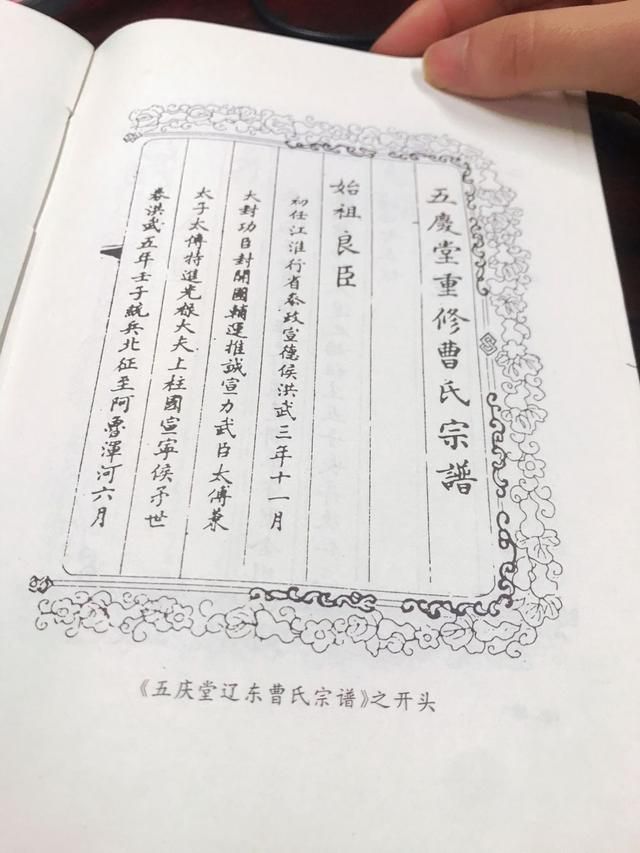 五慶堂重修曹氏宗譜
始祖良臣
初任江淮行省叅政宣德侯洪武三年十一月
大封功臣封開國輔運推誠宣力武臣太傅兼
太子太傅特進光祿大夫上柱國宣寧侯予世
春洪武五年壬子統兵北征至阿魯渾河六月
《五庆堂辽东曹氏宗谱》之开头